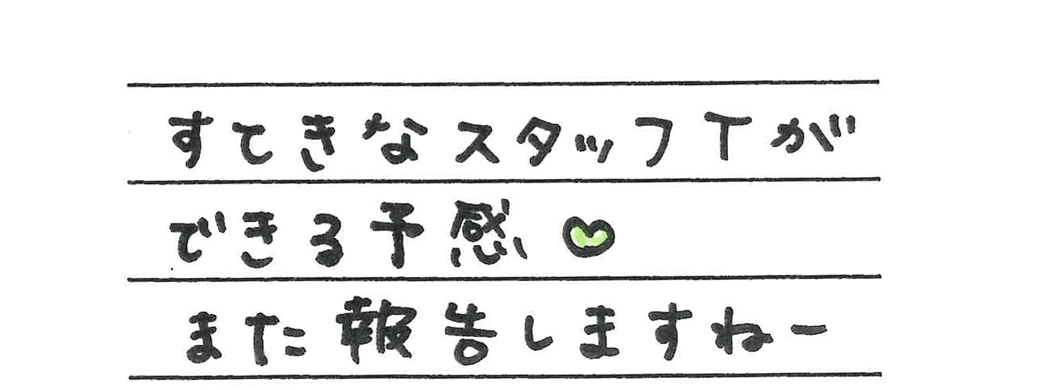 すてきなスタッフTが
できる予感
また報告しますねー